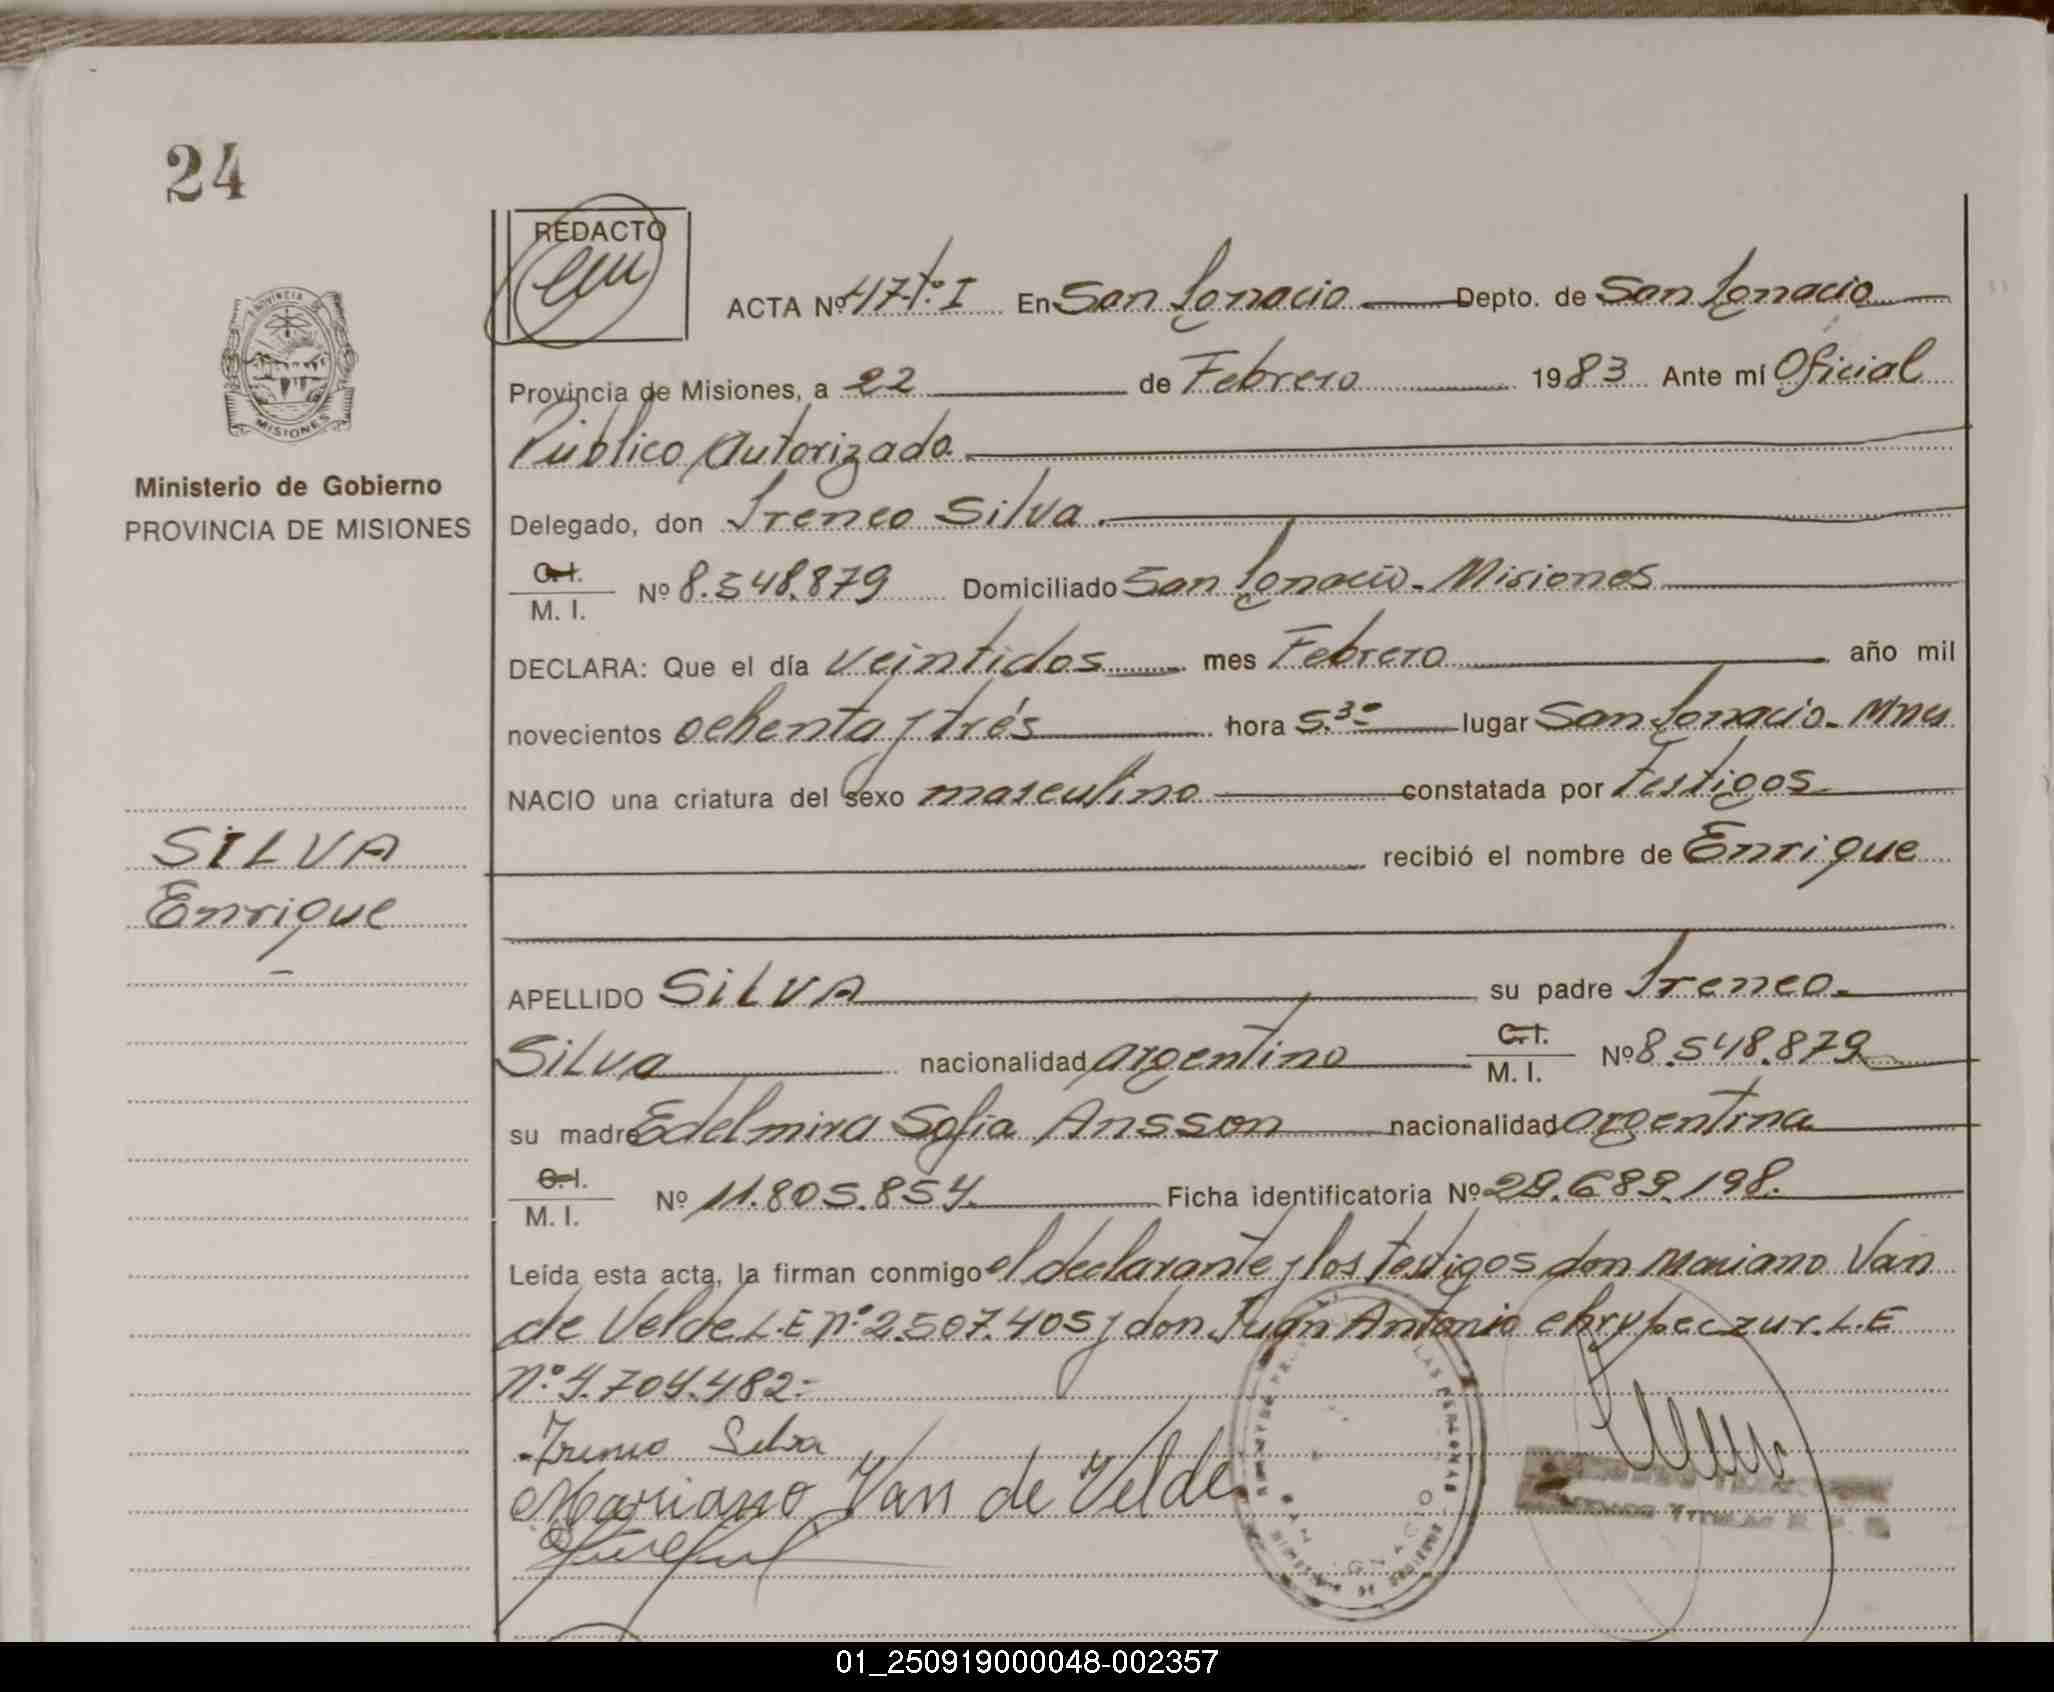 24
REDACTO
ACTA Nº 47-tº.I En San Ignacio Depto. de San Ignacio
Provincia de Misiones, a 22 de Febrero 1983 Ante mí Oficial
Público Autorizado.
Delegado, don Ireneo Silva.
C.I.
M. I.
Nº 8.548.879 Domiciliado San Ignacio - Misiones
DECLARA: Que el día veintidos mes Febrero año mil
novecientos ochenta y trés hora 5.30 lugar San Ignacio - Mnes
NACIO una criatura del sexo masculino constatada por Testigos
recibió el nombre de Enrique
APELLIDO SILVA su padre Ireneo
Silva nacionalidad argentino C.I. M. I. Nº 8.548.879
su madre Edelmira Sofia Ansson nacionalidad argentina
C.I.
M. I.
Nº 11.805.854. Ficha identificatoria Nº 29.689.198.
Leída esta acta, la firman conmigo el declarante y los testigos don Mariano Van
de Velde L.E nº 2.507.405 y don Juan Antonio chrypeczur. L.E
nº.4.704.482-
Ireneo Silva
Mariano Van de Velde
PROVINCIA DE
MISIONES
Ministerio de Gobierno
PROVINCIA DE MISIONES
SILVA
Enrique
SAN IGNACIO
01_250919000048-002357